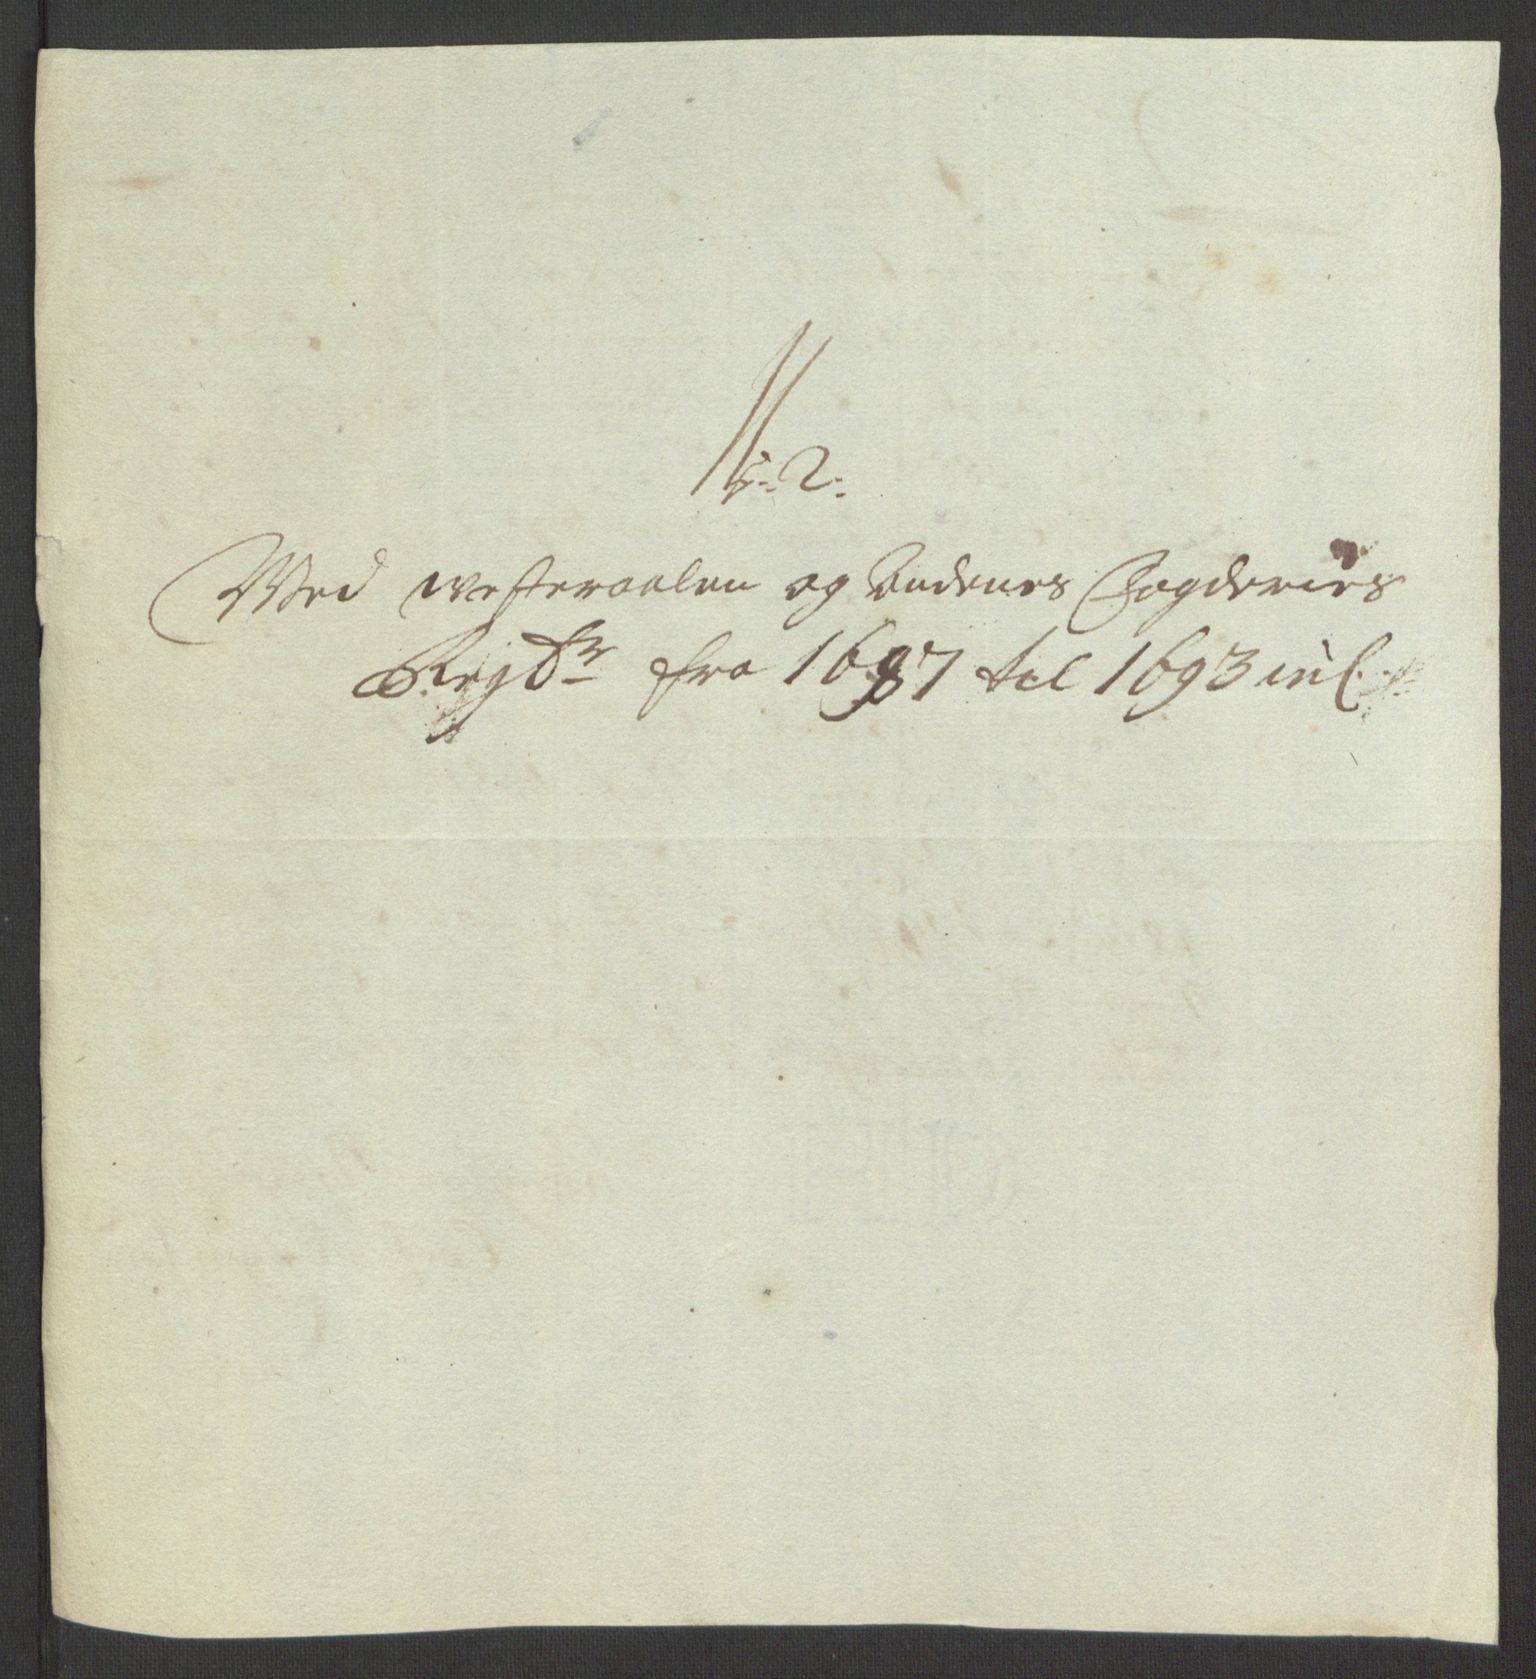 N: 2:
Med westeraalen og Andenes Fogderies
Regsk:r fra 1687 til 1693 incl: